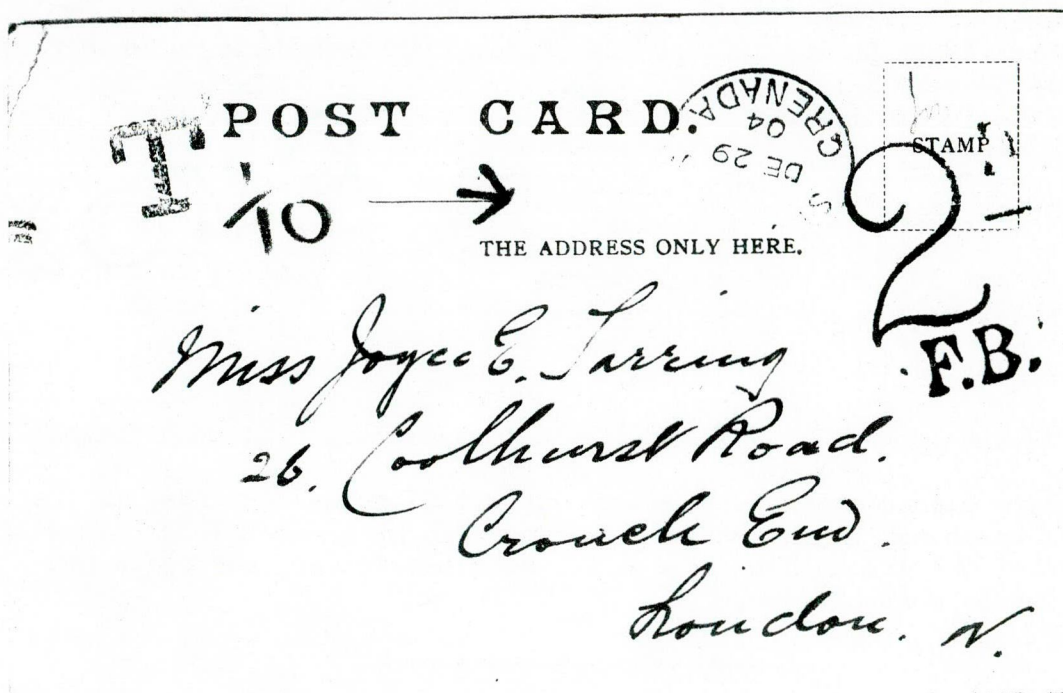 POST CARD.
T
10
GRENADA
DE 29
04
STAMP
2
THE ADDRESS ONLY HERE.
F.B.
Miss Joyce E. Tarring
26. Coolhurst Road.
Crouch End.
London. N.